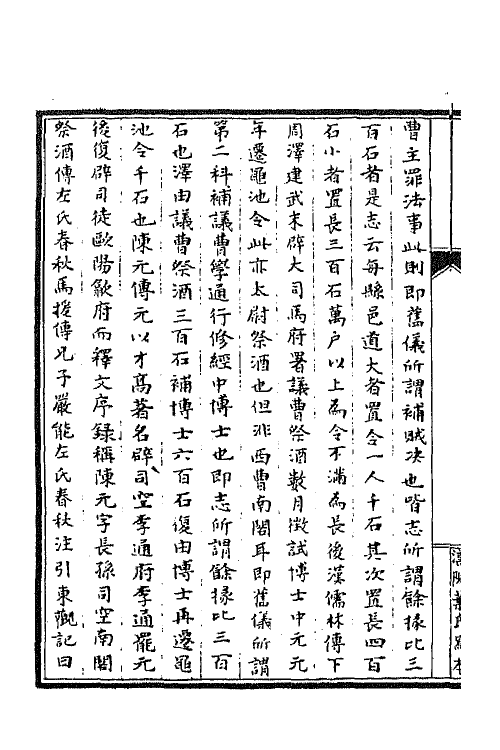 曹主罪法事此則即舊儀所謂補賊决也皆志所謂餘掾比三
百石者是志云每縣邑道大者置令一人千石其次置長四百
石小者置長三百石萬户以上為令不滿為長後漢儒林傳下
周澤建武末辟大司馬府署議曹祭酒數月徴試博士中元元
年遷黽池令此亦太尉祭酒也但非西曹南閤耳即舊儀所謂
第二科補議曹學通行修經中博士也即志所謂餘掾比三百
石也澤由議曹祭酒三百石補博士六百石復由博士再遷黽
池令千石也陳元傳元以才髙著名辟司空李通府李通罷元
後復辟司徒歐陽歙府而釋文序録稱陳元字長孫司空南閣
祭酒傳左氏春秋馬援傳兄子嚴能左氏春秋注引東觀記曰